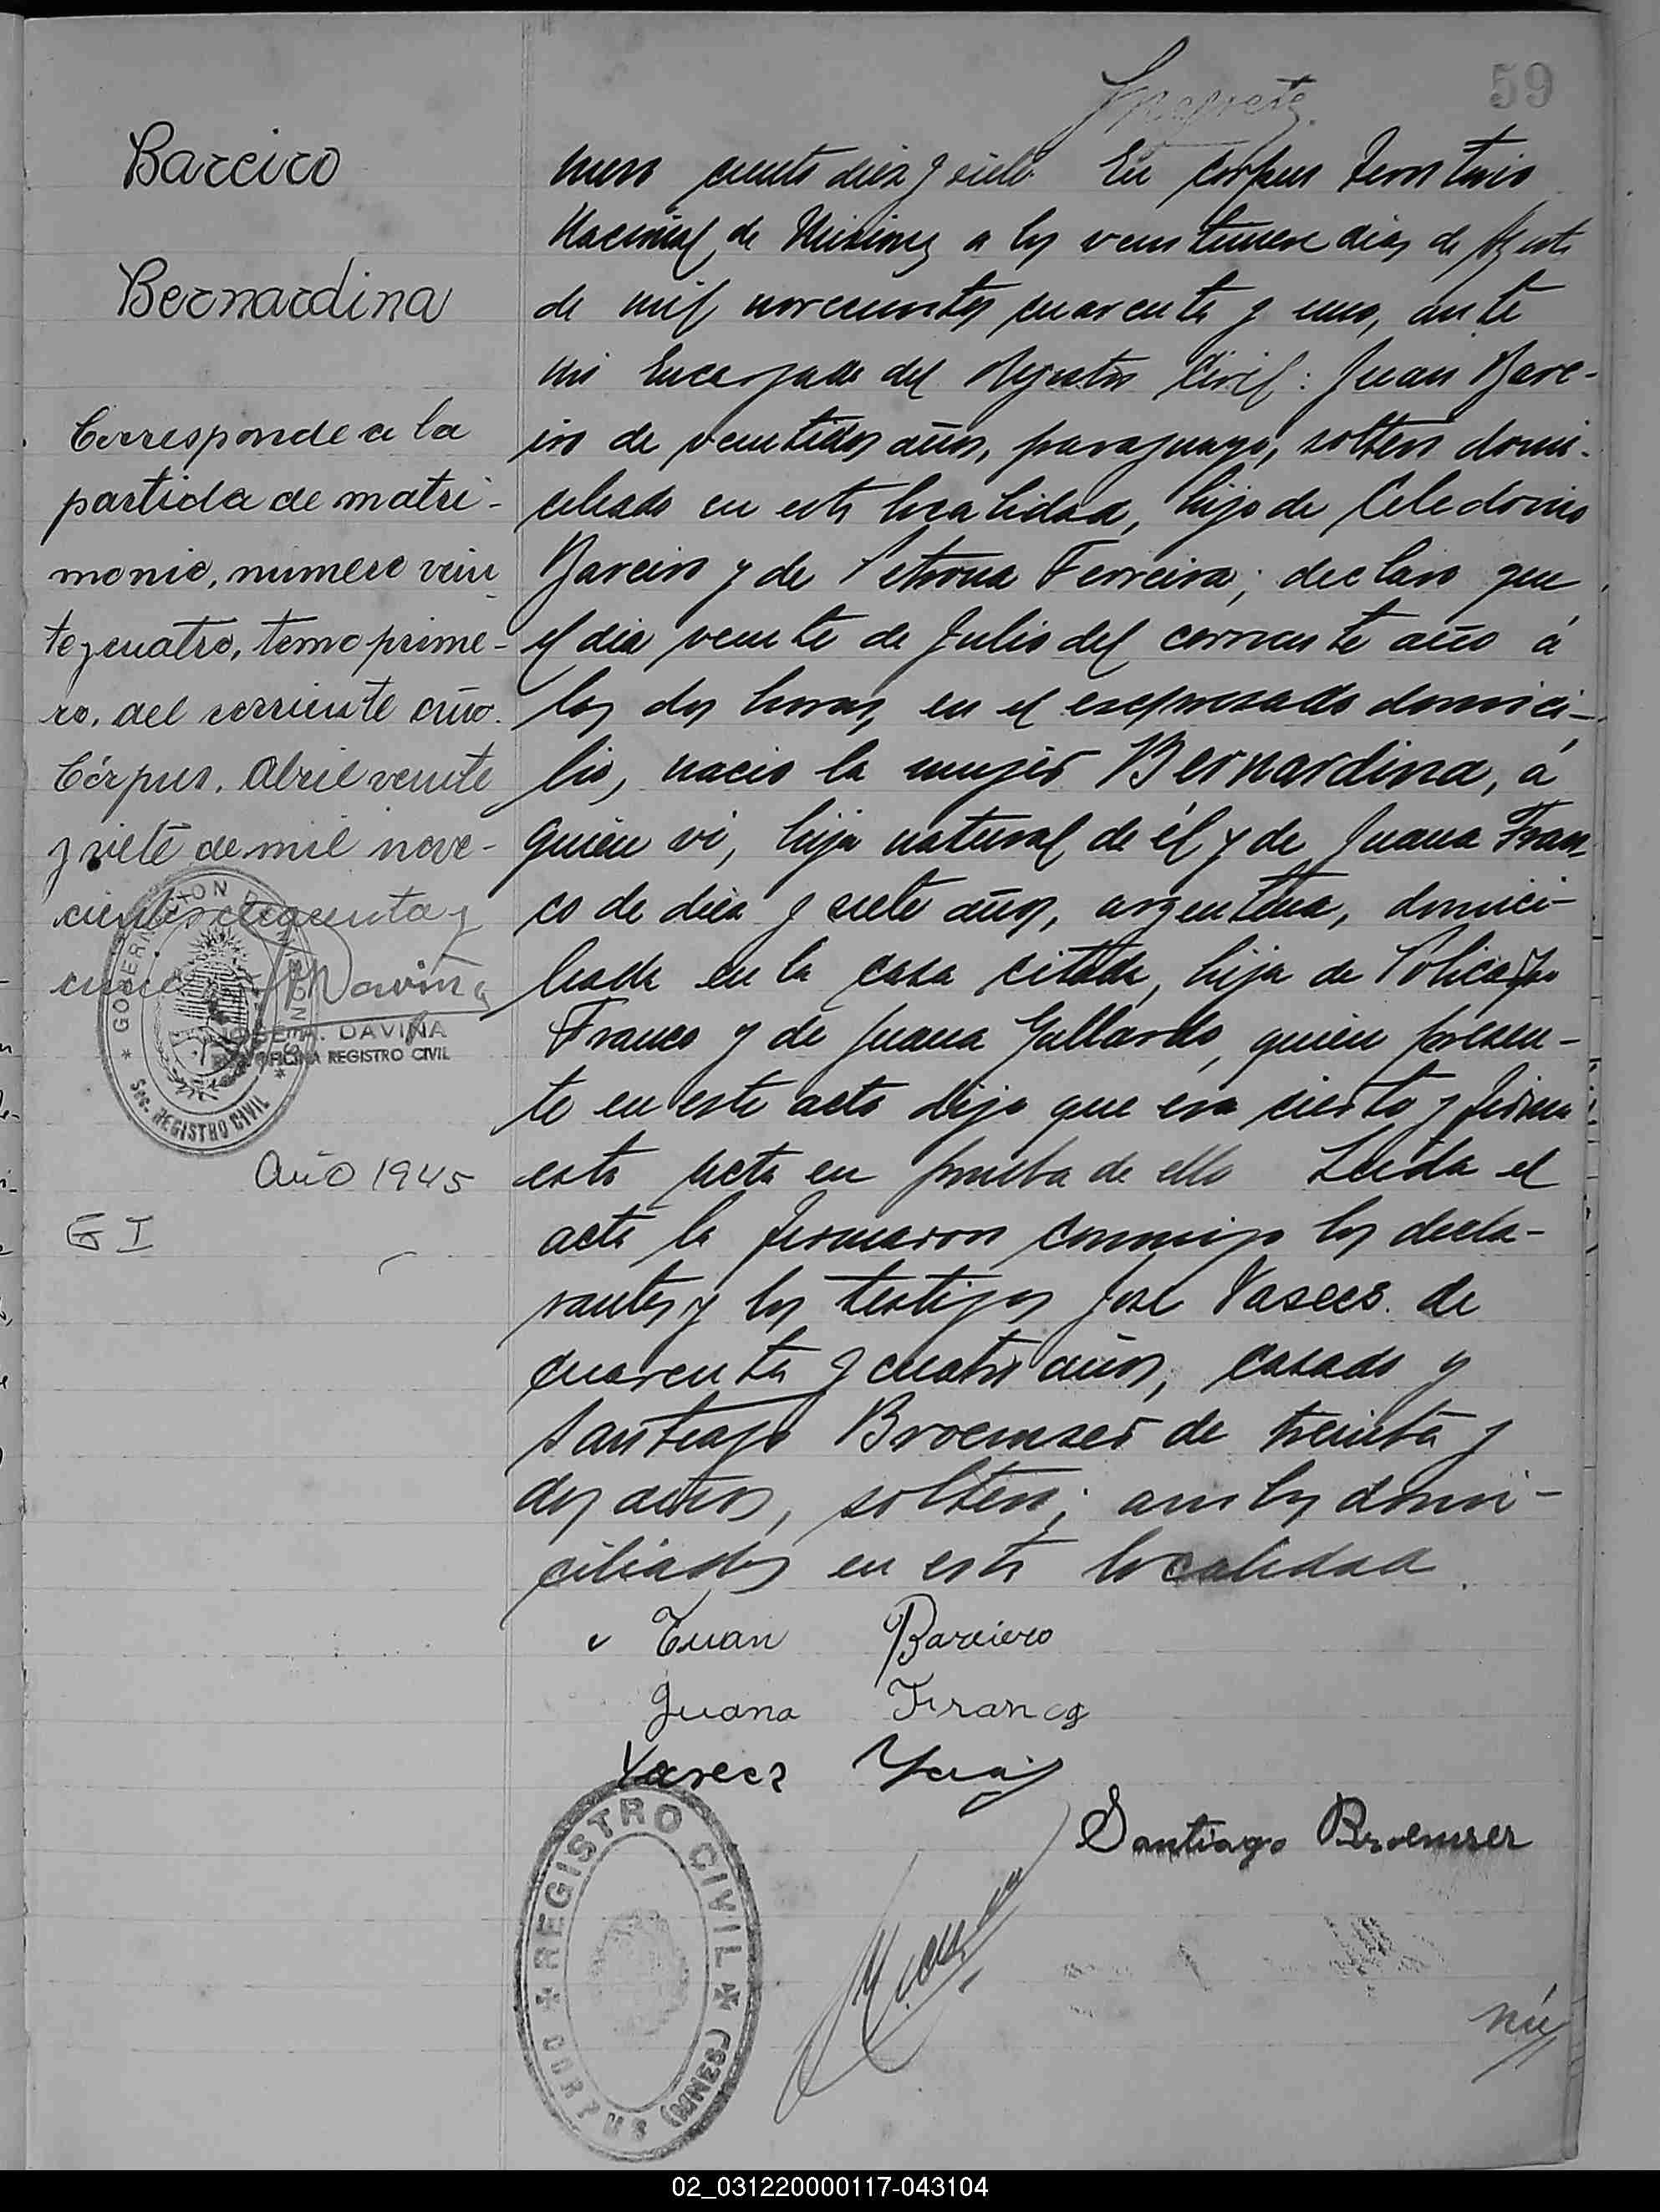 59
Bareiro
Bernardina
Corresponde a la
partida de matri-
monio, numero vein
te y cuatro, tomo prime-
ro, del corriente año.
Córpus, Abril veinte
y siete de mil nove-
cientos cincuenta y
Daviña
JOSE A. DAVIÑA
OFICINA REGISTRO CIVIL
GOBERNACION DE MISIONES
Sec. REGISTRO CIVIL
Año 1945
G I
mero ciento diez y siete. En Corpus Territorio
Nacional de Misiones a los dias de Agosto
de mil novecientos cuarenta y uno, ante
mi Encargado del Registro Civil: Juan Bare-
iro de veintidos años, paraguayo, soltero domi-
ciliado en esta localidad, hijo de Celedonio
Bareiro y de Petrona Ferreira; declaro que
el dia veinte de Julio del corriente año á
las dos horas, en el expresado domici-
lio, nacio la mujer Bernardina, á
quien vi, hija natural de él y de Juana Fran-
co de diez y siete años, argentina, domici-
liada en la casa citada, hija de Policarpo
Franco y de Juana Gallardo, quien presen-
te en este acto dijo que era cierto y firma
esta acta en prueba de ello Leida el
acta la firmaron conmigo los decla-
rantes y los testigos José Vasees de
cuarenta y cuatro años, casado y
Santiago Broemser de treinta y
dos años, soltero; ambos domi-
ciliados en esta localidad.
Juan Bareiro
Juana Franco
Santiago Broemser
REGISTRO CIVIL
CORPUS (MNES)
nú
02_031220000117-043104